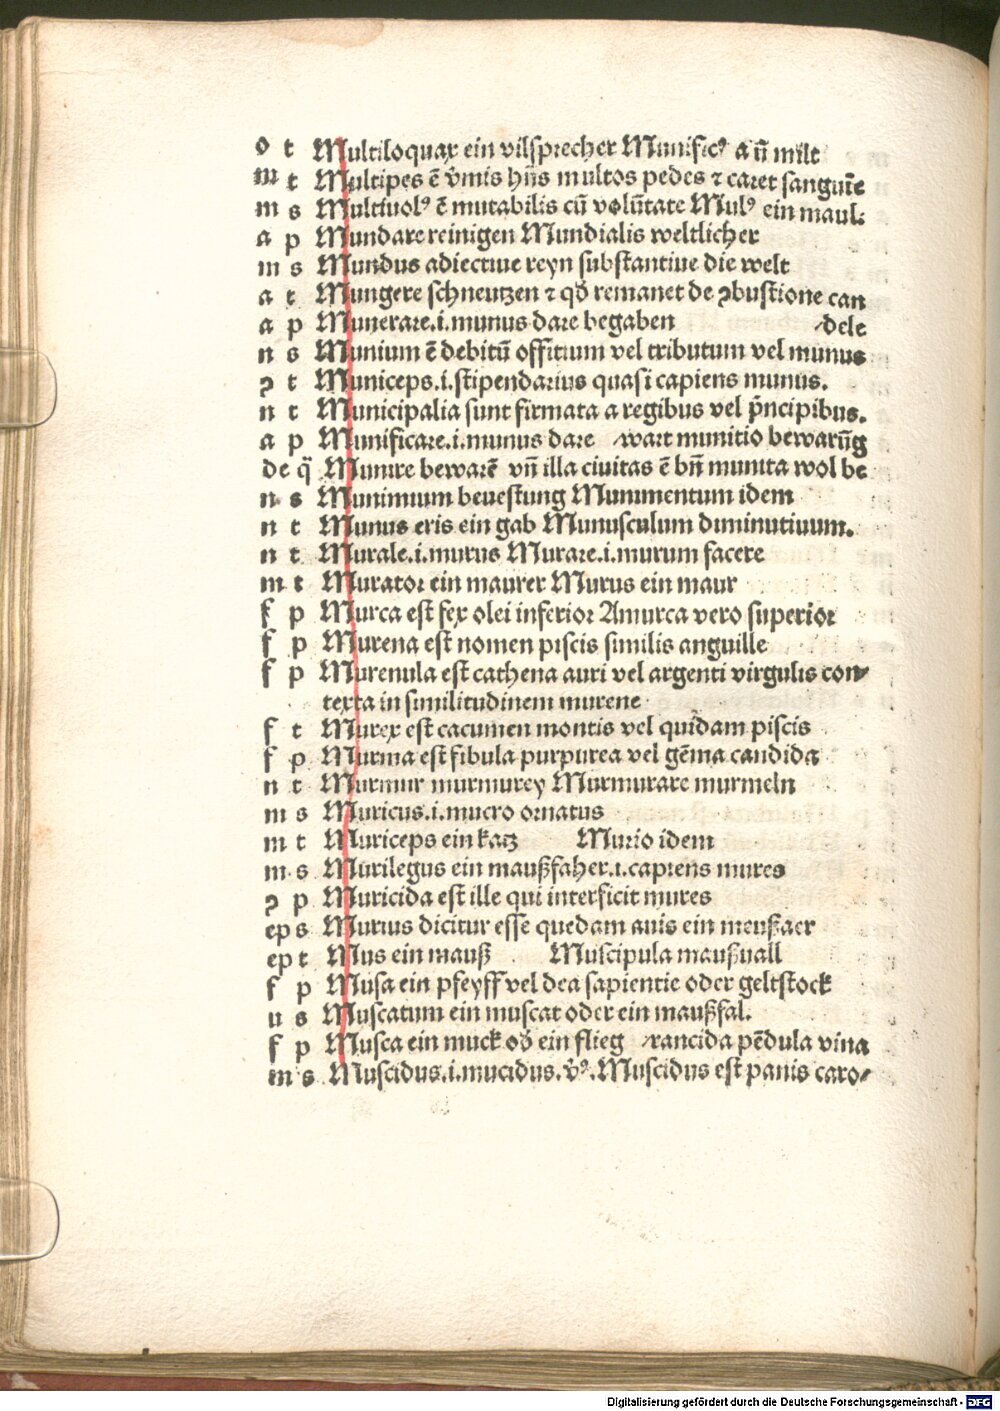 o t Multiloquax ein vilsprecher Munificꝰ a ū milt
m t Multipes ē v̄mis hn̄s multos pedes ⁊ caret sanguīe
m s Multiuolꝰ ē mutabilis cū volūtate Mulꝰ ein maul:
a p Mundare reinigen Mundialis weltlicher
m s Mundus adiectiue reyn substantiue die welt
a t Mungere schneutzen ⁊ qđ remanet de ꝯbustione can
a p Munerare.i.munus dare begaben dele
n s Munium ē debitū offitium vel tributum vel munus
ꝯ t Municeps.i.stipendarius quasi capiens munus.
n t Municipalia sunt firmata a regibus vel p̄ncipibus.
a p Munificare.i.munus dare wart munitio bewarūg
de q̄ Munire bewarē vn̄ illa ciuitas ē bn̄ munita wol be
n s Munimium beuestung Munimentum idem
n t Munus eris ein gab Munusculum diminutiuum.
n t Murale.i.murus Murare.i.murum facere
m t Murator ein maurer Murus ein maur
f p Murca est fex olei inferior Amurca vero superior
f p Murena est nomen piscis similis anguille
f p Murenula est cathena auri vel argenti virgulis con⸗
texta in similitudinem murene
f t Murex est cacumen montis vel quidam piscis
f p Murma est fibula purpurea vel gēma candida
n t Murmur murmurey Murmurare murmeln
m s Muricus.i.mucro ornatus
m t Muriceps ein katz Murio idem
m s Murilegus ein maußfaher.i.capiens mures
ꝯ p Muricida est ille qui interficit mures
ep s Murius dicitur esse quedam auis ein meußaer
ep t Mus ein mauß Muscipula maußuall
f p Musa ein pfeyff vel dea sapientie oder geltstock
u s Muscatum ein muscat oder ein maußfal.
f p Musca ein muck ođ ein flieg rancida pēdula vina
m s Muscidus.i.mucidus.v̄ꝰ.Muscidus est panis caro⸗
Digitalisierung gefördert durch die Deutsche Forschungsgemeinschaft - DFG